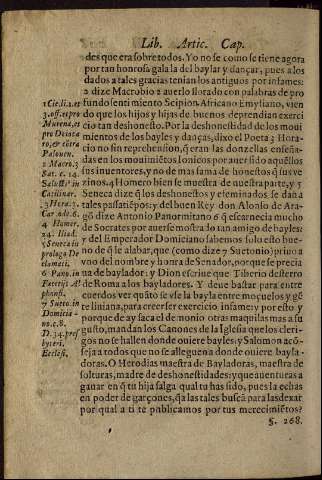 Lib. Artic. Cap.
des que era sobre todos. Yo no se como se tiene agora
por tan honrosa gala la del baylar y dançar, pues a los
dados a tales gracias tenian los antiguos por infames:
2 dize Macrobio 2 auerlo llorado con palabras de pro
fundo sentimiento Scipion Africano Emyliano, vien
do que los hijos y hijas de buenos deprendian exerci
cio tan deshonesto. Por la deshonestidad de los moui
mientos de los bayles y danças, dixo el Poeta 3 Hora
cio no sin reprehension, q̃ eran las donzellas enseña-
das en los mouimiẽtos Ionicos por auer sido aquellos
sus inuentores, y no de mas fama de honestos q̃ sus ve
zinos. 4 Homero bien se muestra de nuestra parte, y 5
Seneca dize q̃ los deshonestos y efeminados se dan a
tales passatiẽpos: y del buen Rey don Alonso de Ara-
gõ dize Antonio Panormitano 6 q̃ escarnecia mucho
de Socrates por auerse mostrado tan amigo de bayles:
7 del Emperador Domiciano sabemos solo esto bue-
no de q̃ le alabar, que (como dize 7 Suetonio) priuo a
vno del nombre y honra de Senador, porque se precia
ua de baylador: y Dion escriue que Tiberio desterro
de Roma a los bayladores. Y deue bastar para entre
cuerdos ver quãto se vfe la bayla entre moçuelos y gẽ
te liuiana, para creer ser exercicio infame: y por esto y
porque de ay saca el demonio otras maquilas mas a su
gusto, mandan los Canones de la Iglesia que los cleri-
gos no se hallen donde ouiere bayles: y Salomon acõ-
seja a todos que no se alleguen a donde ouiere bayla-
doras. O Herodias maestra de Bayladoras, maestra de
solturas, madre de deshonestidades: y que auenturas a
ganar en q̃ tu hija salga qual tu has sido, pues la echas
en poder de garçones, q̃a las tales buscã para las dexar
por qual a ti te publicamos por tus merecimiẽtos?
S. 268.
1 Cic. li. 2. et
3. off. et pro
Murena, et
pro Deiota
ro, & cõtra
Pisonem.
2 Macro. 3
Sat. c. 14.
Salust. in
Catilinar.
3 Hora. 3.
Car. ode. 6.
4 Homer.
24. Iliad.
5 Seneca in
prologo De
clamati.
6 Pano. in
Facetijs Al
phonsi.
7 Sueto. in
Domicia-
no. c. 8.
D. 34. pres
byteri.
Ecclesi.